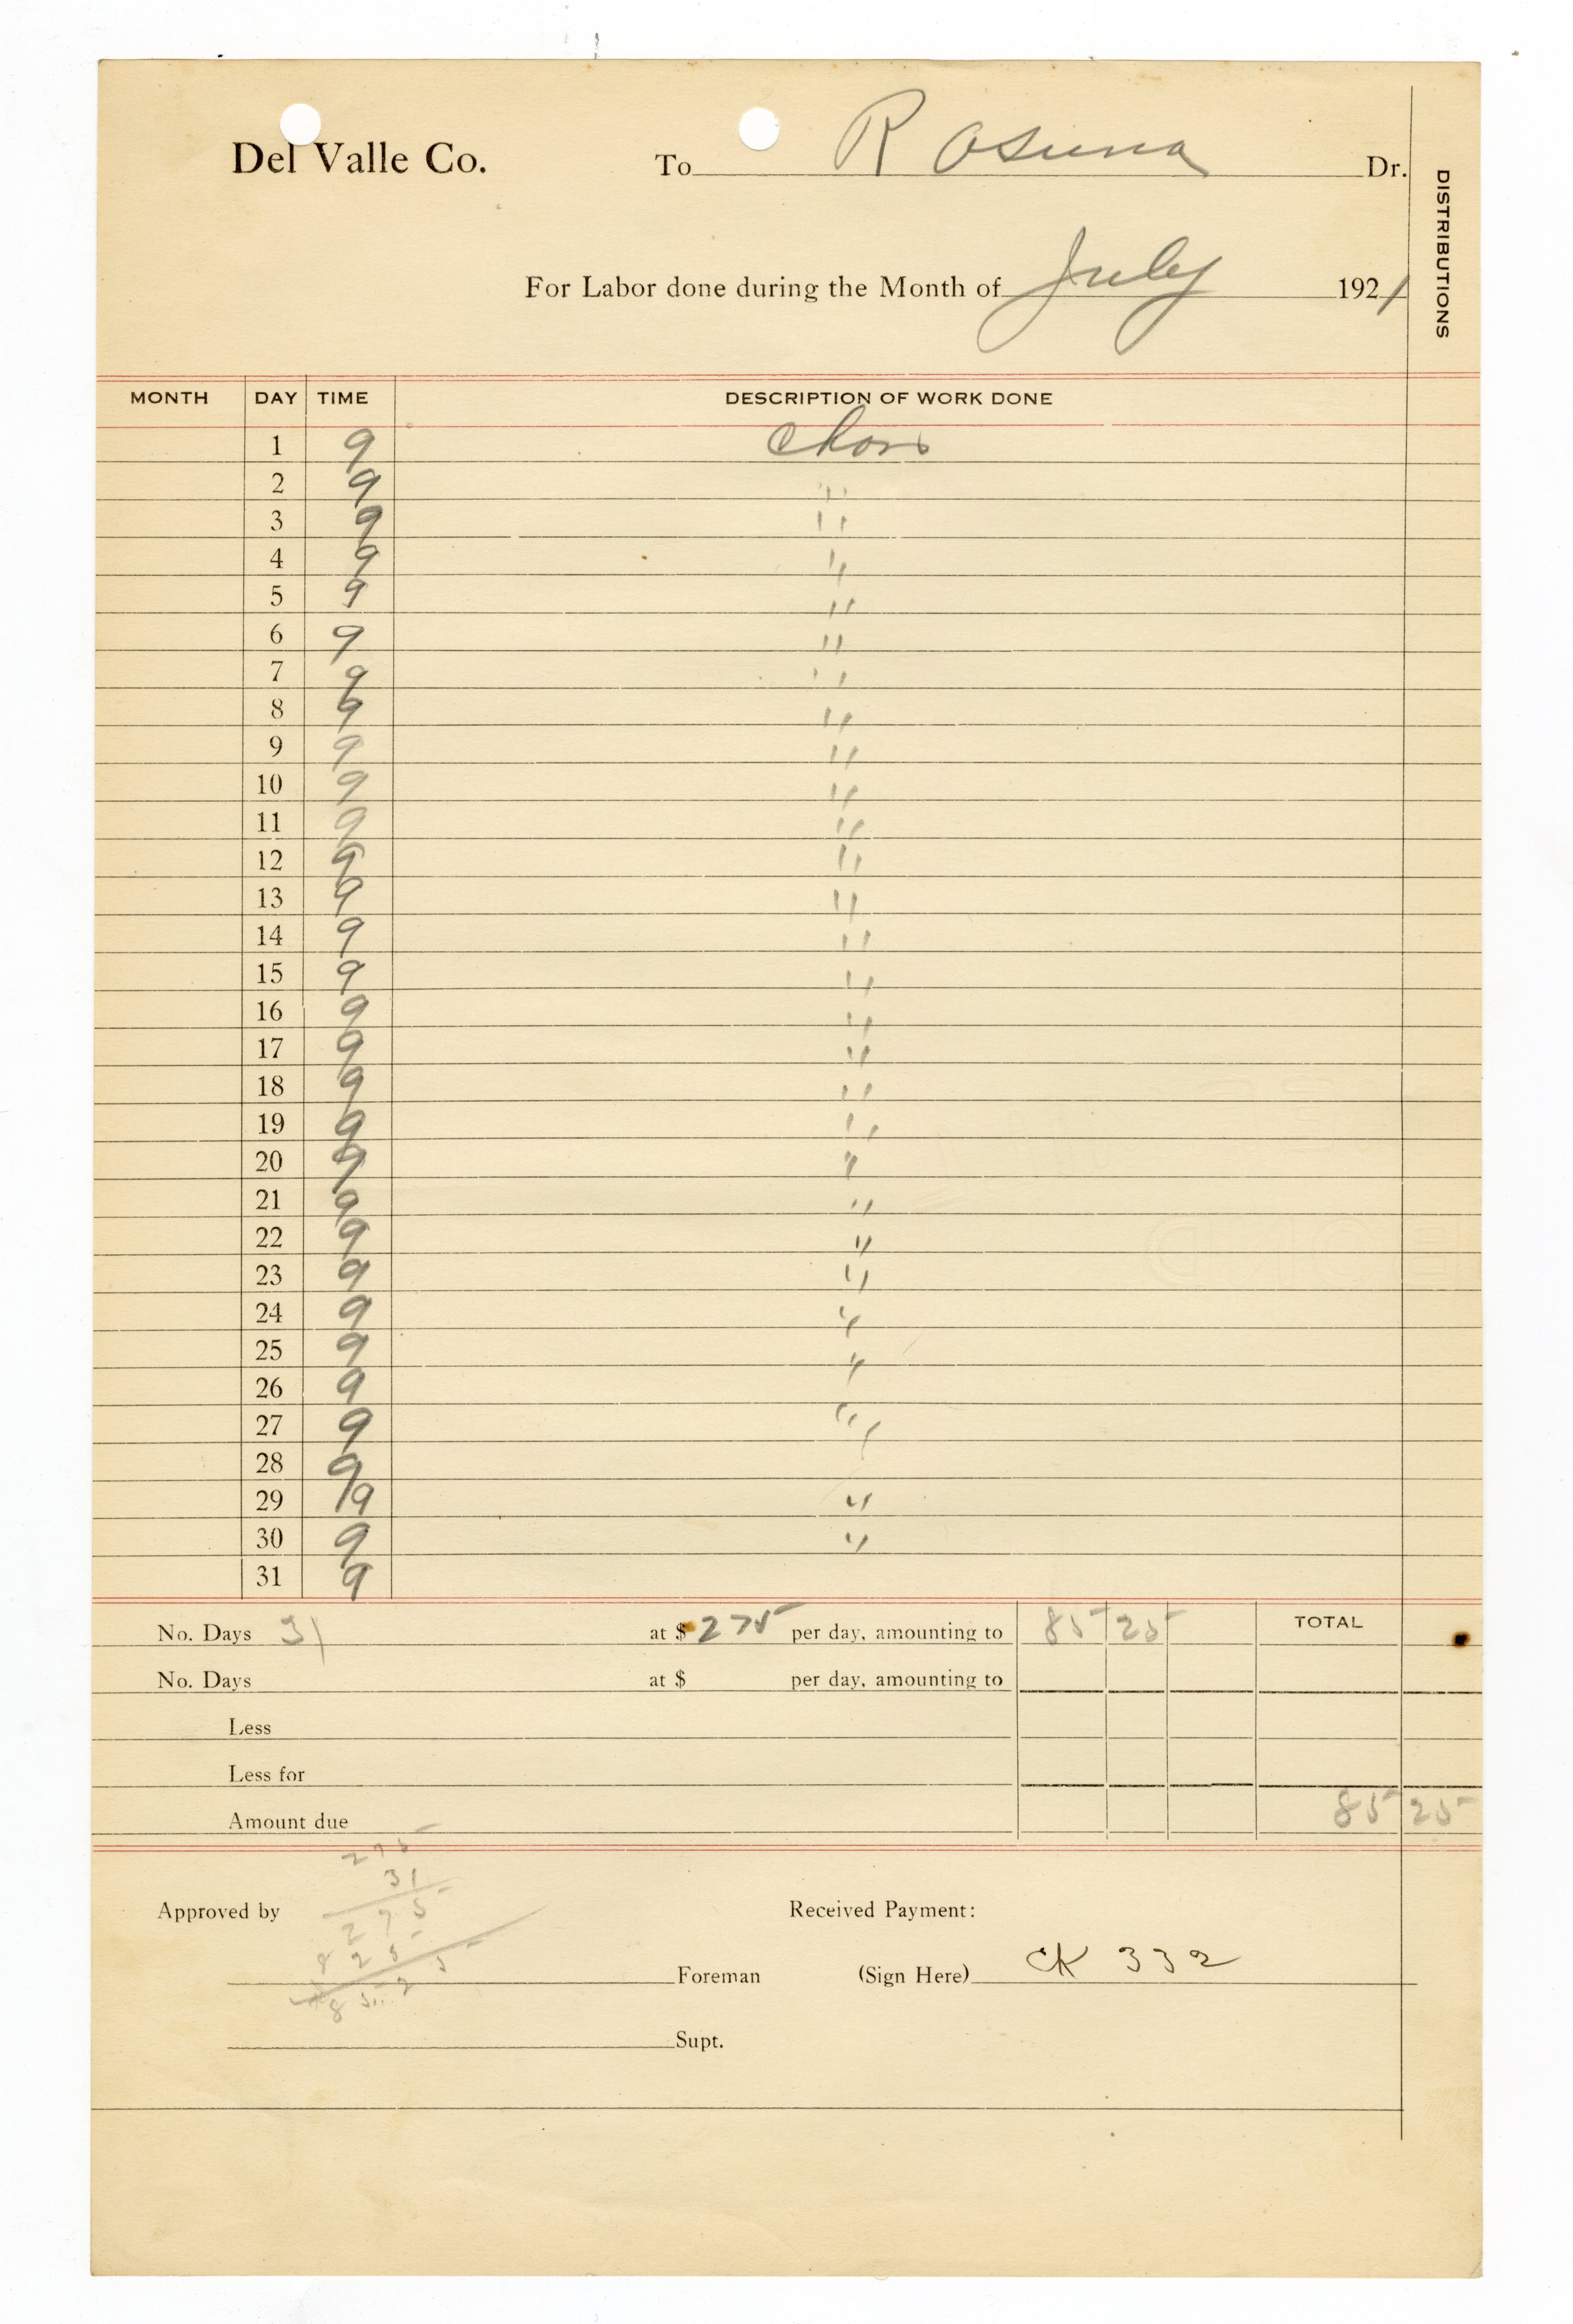 Del Valle Co. To R Osuna Dr.
DISTRIBUTIONS
For Labor done during the Month of July 1921
MONTH DAY TIME DESCRIPTION OF WORK DONE
1 9 Chors
2 9 "
3 9 "
4 9 "
5 9 "
6 9 "
7 9 "
8 9 "
9 9 "
10 9 "
11 9 "
12 9 "
13 9 "
14 9 "
15 9 "
16 9 "
17 9 "
18 9 "
19 9 "
20 9 "
21 9 "
22 9 "
23 9 "
24 9 "
25 9 "
26 9 "
27 9 "
28 9
29 9 "
30 9 "
31 9
No. Days 31 at $ 275 per day, amounting to 85 25 TOTAL
No. Days at $ per day, amounting to
Less
Less for
Amount due 85 25
275
31
Approved by 275 Received Payment:
825
Foreman (Sign Here) CK 332
85.25
Supt.
BOND